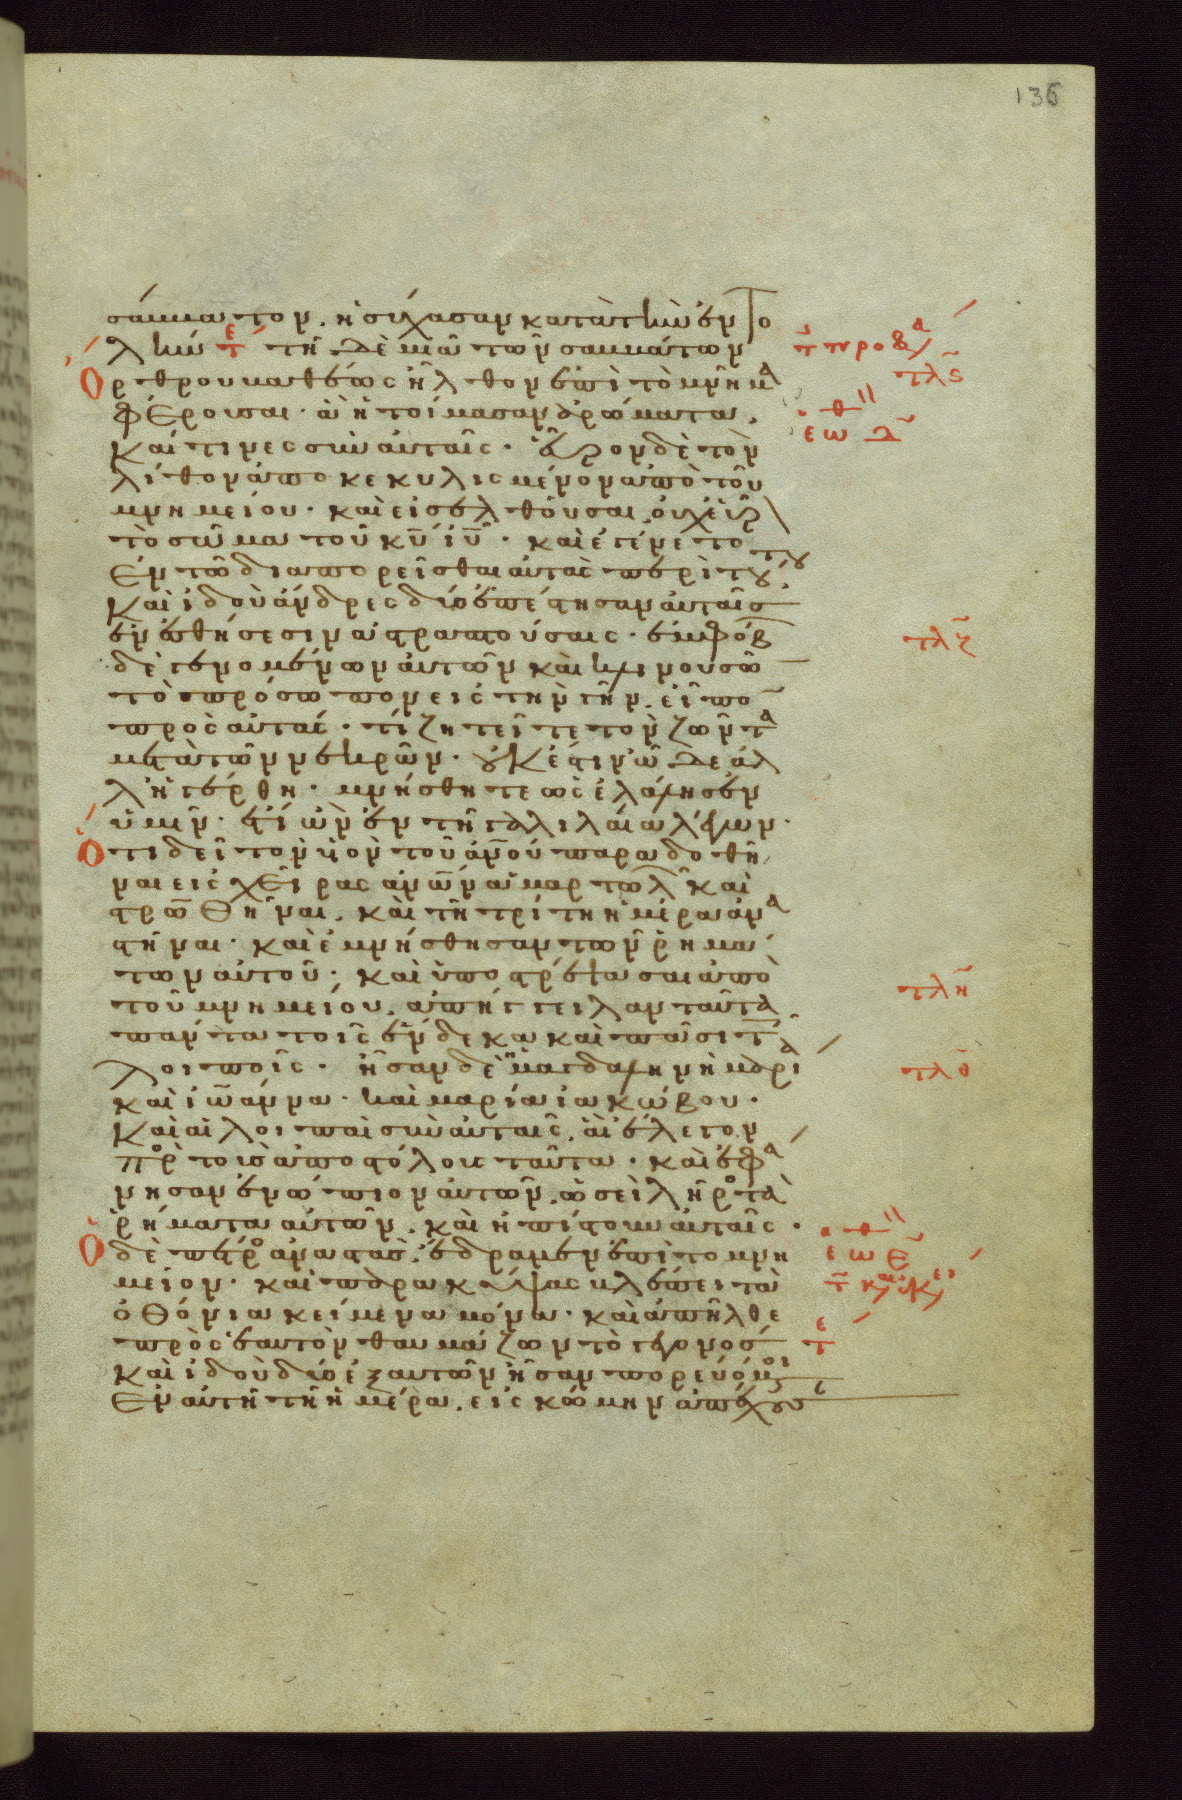 136
σάββατον. ἡσύχασαν κατὰ τὴν ἐντο
λήν τε τῆ δὲ μιᾶ τῶν σαββάτων
Ορθρου βαθέως ἦλθον ἐπὶ τὸ μνῆμα
φέρουσαι· ἃ ἡτοίμασαν ἀρώματα,
καί τινες σὺν αὐταῖς· εὗρον δὲ τὸν
λίθον ἀποκεκυλισμένον ἀπὸ τοῦ
μνημείου· καὶ εἰσελθοῦσαι οὐχ εὗρ
τὸ σῶμα τοῦ κυ ιυ· καὶ ἐγένετο
ἐν τῶ διαπορεῖσθαι αὐτὰς περὶ τού
του
καὶ ἰδοὺ ἄνδρες δύο ἐπέστησαν αὐταῖς
ἐν ἐσθήσεσιν ἀστραπτούσαις· ἐμφόβ
δὲ γενομένων αὐτῶν καὶ κλινουσῶ
τὸ πρόσωπον εἰς τὴν γῆν, εἶπο
πρὸς αὐτάς· τί ζητεῖτε τὸν ζῶντα
μετὰ τῶν νεκρῶν· οὐκ ἔστιν ὧδε ἀλ
λ' ἠγέρθη· μνήσθητε ὡς ἐλάλησεν
ὑμῖν· ἔτι ὢν ἐν τῆ γαλιλαία λέγων·
Οτι δεῖ τὸν υἱὸν τοῦ ανου παραδοθῆ
ναι εἰς χεῖρας ανων αμαρτωλ καὶ
στρωθῆναι, καὶ τῆ τρίτη ἡμέρα ἀνα
στῆναι· καὶ ἐμνήσθησαν τῶν ῥημά
των αὐτοῦ· καὶ ὑποστρέψασαι ἀπὸ
τοῦ μνημείου, ἀπήγγειλαν ταῦτα
πάντα τοῖς ἕνδεκα καὶ πᾶσι τ
λοιποῖς· ἦσαν δὲ ἡ μαγδαληνὴ μαρία
καὶ ιωάννα· καὶ μαρία ἰακώβου·
καὶ αἱ λοιπαὶ σὺν αὐταῖς, αἳ ἔλεγον
πρ τοὺς ἀποστόλους ταῦτα· καὶ ἐφά
νησαν ἐνώπιον αὐτῶν, ὡσεὶ λῆρος τὰ
ῥήματα αὐτῶν, καὶ ἠπίστουν αὐταῖς·
Ο δὲ πέτρο ἀναστὰς, ἔδραμεν ἐπὶ τὸ μνη
μεῖον· καὶ παρακύψας βλέπει τὰ
ὀθόνια κείμενα μόνα· καὶ ἀπῆλθε
πρὸς ἑαυτὸν θαυμάζων τὸ γεγονός
καὶ ἰδοὺ δύο ἐξ αὐτῶν ἦσαν πορευόμενοι
ἐν αὐτῆ τῆ ἡμέρα, εἰς κώμην ἀπέχουσ
τλς
εω δ
τλζ
τλη
τλθ
εω ε
τε